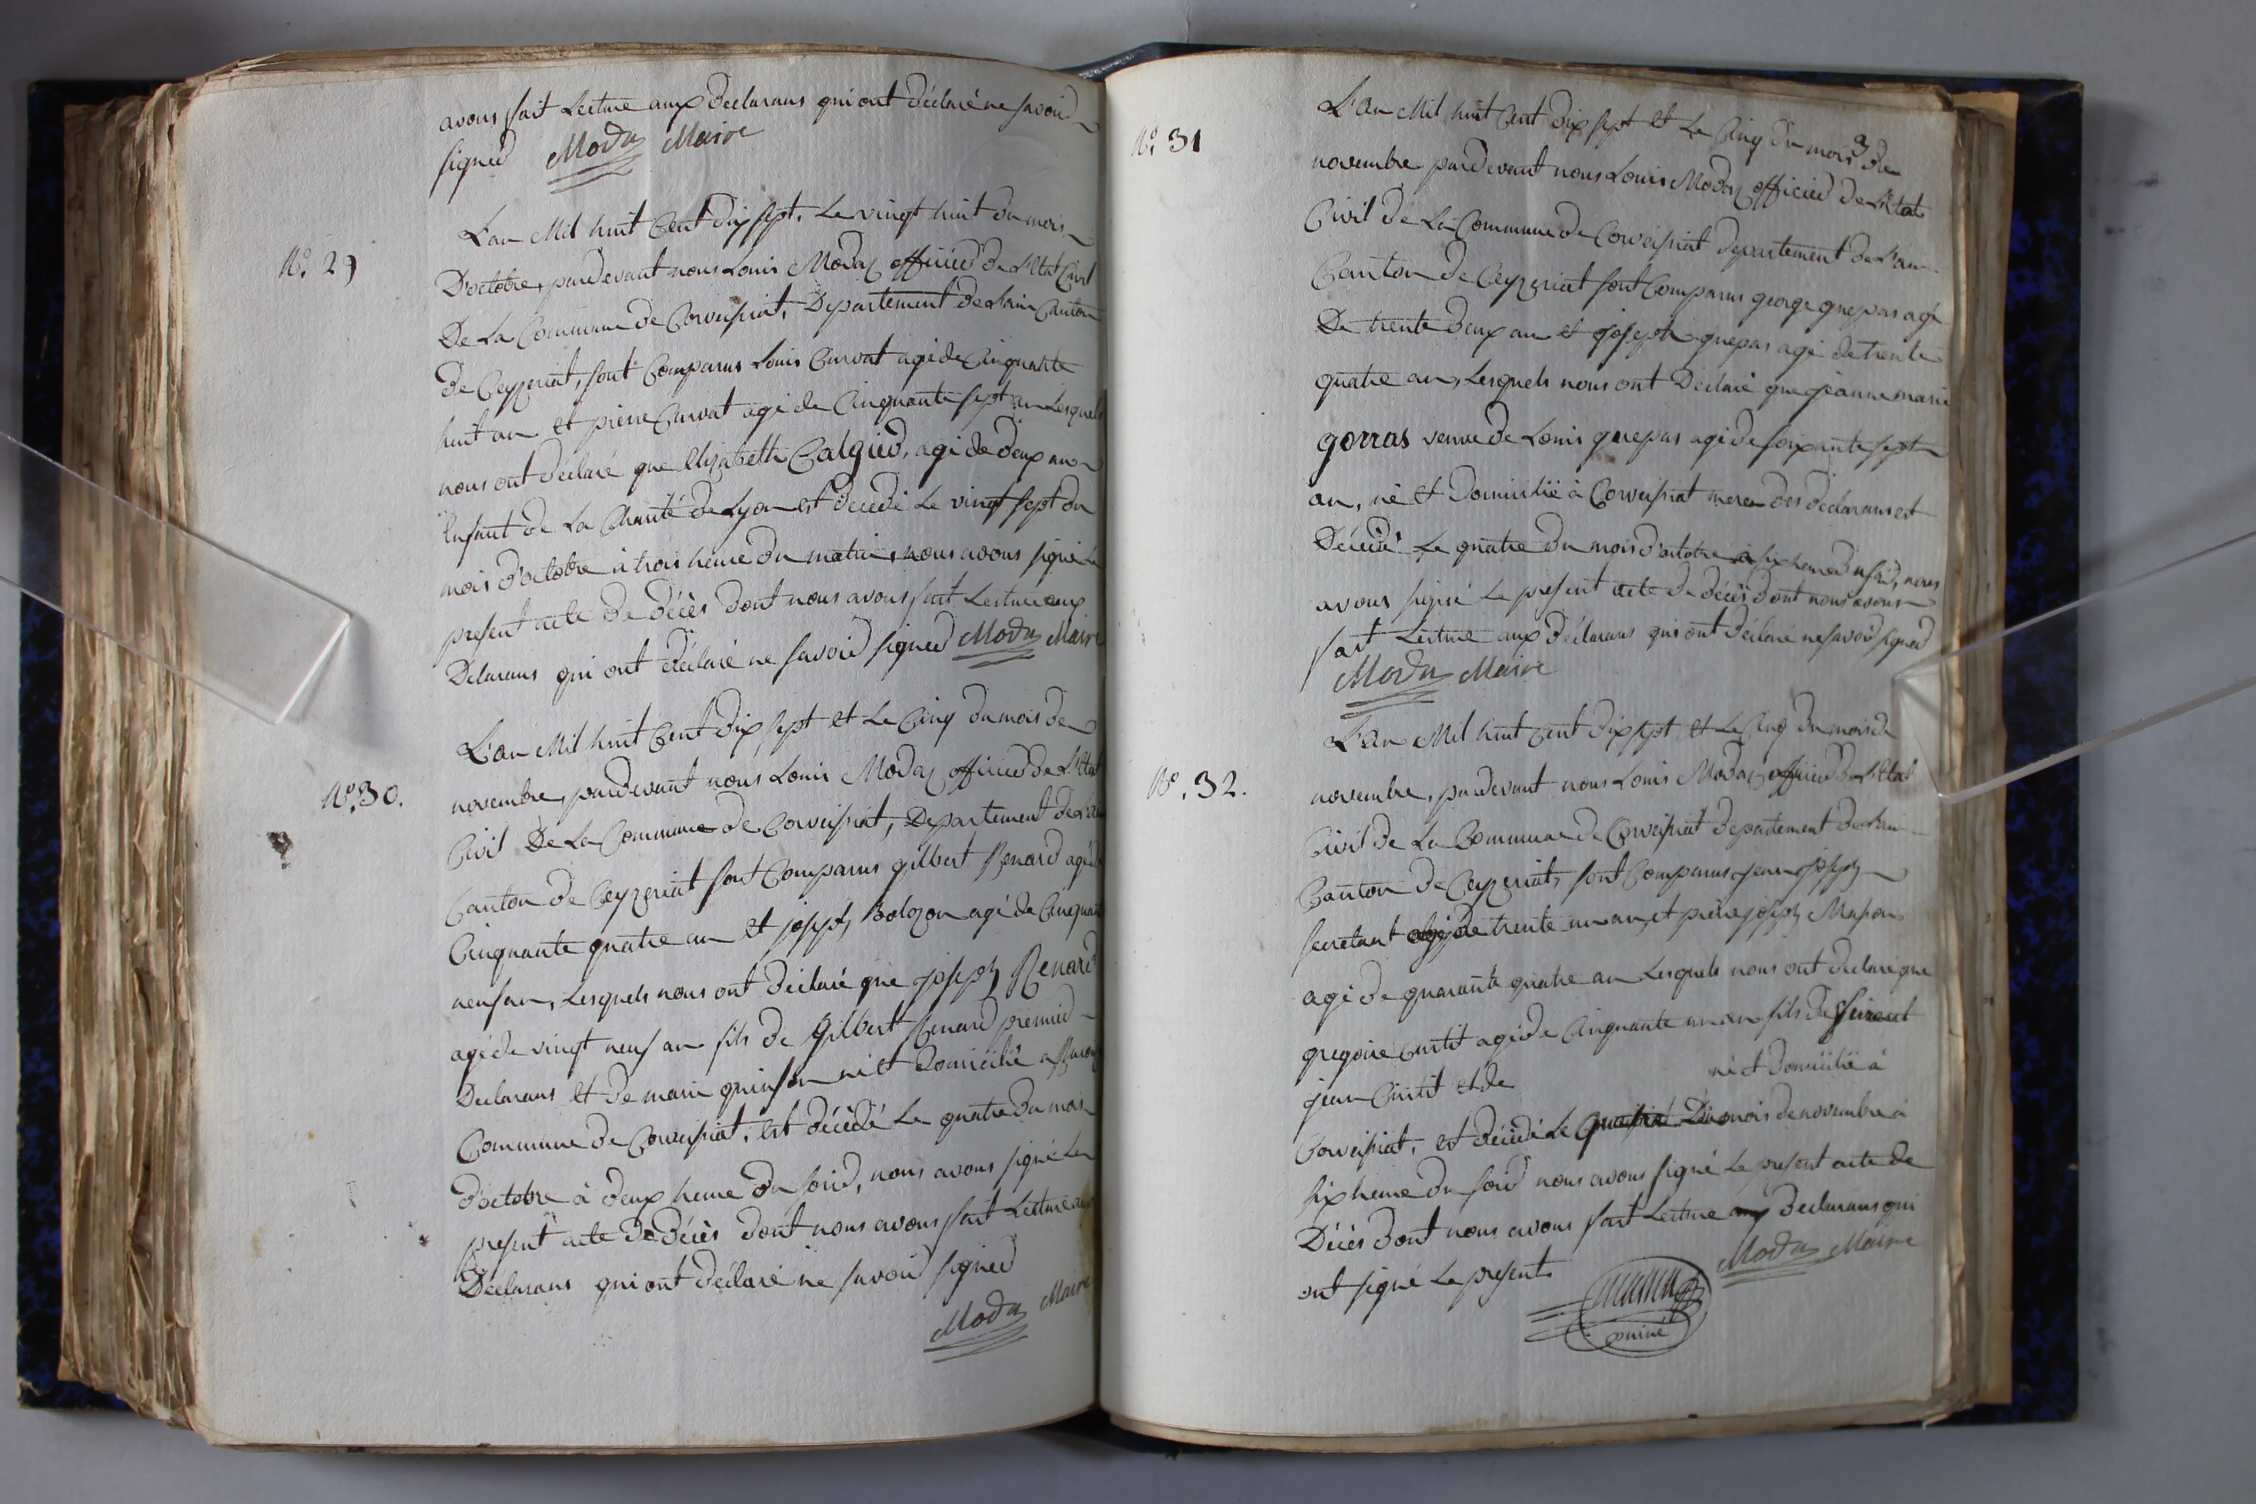 avons fait Lecture aux declarans qui ont déclaré ne savoir
signer Moda Maire
N.º 29
L'an Mil huit Cent dix sept, Le vingt huit du mois
D'octobre, pardevant nous Louis Modas officier de L'Etat Civil
De La Commune de Corveissiat, Departement de L'ain Canton
de Ceyzeriat, sont Comparus Louis Curvat agé de Cinquante
huit an et pierre Curvat agé de Cinquante sept an Lesquels
nous ont déclaré que Elizabeth Calgier, agé de deux an
Enfant de La Charité de Lyon est décédé Le vingt sept du
mois d'octobre à trois heure du matin, nous avons signé Le
present acte de décès dont nous avons fait Lecture aux
Delarans qui ont déclaré ne savoir signer Moda Maire
N.º 30.
L'an Mil huit Cent dix sept et Le Cinq du mois de
novembre, pardevant nous Louis Modas officier de L'Etat
Civil De La Commune de Corveissiat, Departement de L'ain
Canton de Ceyzeriat sont Comparus gilbert Renard agé de
Cinquante quatre an et joseph Bolozon agé de Cinquante
neuf an, Lesquels nous ont déclaré que joseph Renard
agé de vingt neuf an fils de gilbert Renard premier
Declarans et de marie quinson né et domicilié a
Commune de Corveissiat, est décédé Le quatre du mois
d'octobre à deux heure du soir, nous avons signé Le
present acte de décès dont nous avons fait Lecture aux
Declarans qui ont déclaré ne savoir signer
Moda Maire
N.º 31
L'an Mil huit Cent dix sept et Le Cinq du mois de
novembre pardevant nous Louis Modas officier de L'Etat
Civil de La Commune de Corveissiat departement de L'ain
Canton de Ceyzeriat sont Comparus george grepas agé
De trente deux an et joseph grepas agé de trente
quatre an, Lesquels nous ont Déclaré que jeanne marie
gorras veuve de Louis grepas agé de soixante sept
an, né et Domicilié à Corveissiat mere des declarans est
Décédé Le quatre du mois d'octobre à six heure du soir, nous
avons signé Le present acte de décès dont nous avons
fait Lecture aux déclarans qui ont déclaré ne savoir signer
Moda Maire
N.º 32.
L'an Mil huit Cent dix sept et Le Cinq du mois de
novembre, pardevant nous Louis Modas officier de L'Etat
Civil de La Commune de Corveissiat departement de L'ain
Canton de Ceyzeriat, sont Comparus jean joseph
secretant agé de trente un an, et pierre joseph Masson
agé de quarante quatre an Lesquels nous ont declaré que
gregoire Curtit agé de Cinquante un an fils de
jean Curtit et de né et Domicilié à
Corveissiat, est décédé Le Du mois de novembre à
six heure du soir nous avons signé Le present acte de
Décès dont nous avons fait Lecture aux declarans qui
ont signé Le present
Moda Maire